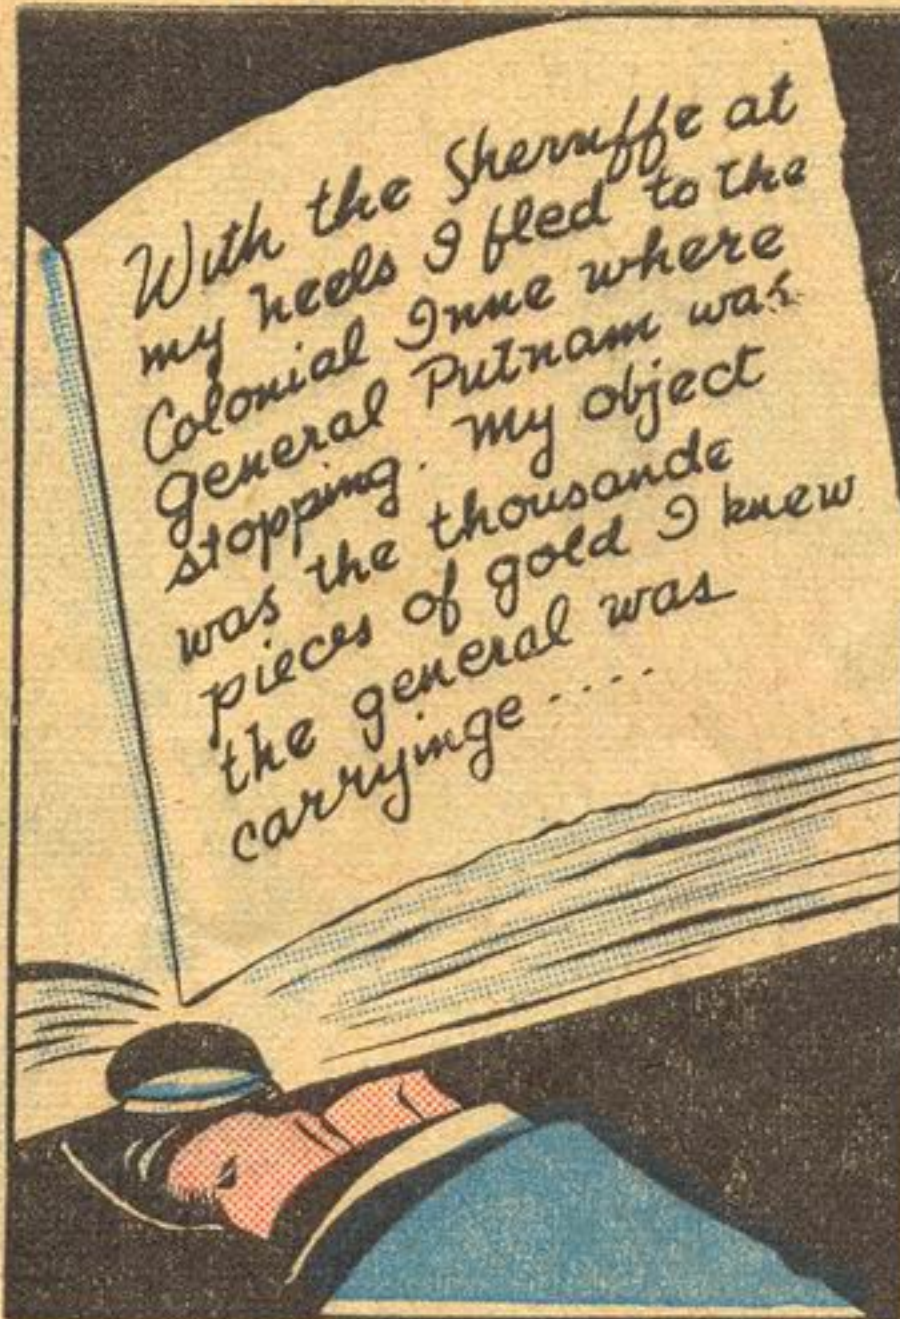 With the Sherriffe at
my heels I fled to the
Colonial Inne where
general Putnam was
stopping. My object
was the thousande
pieces of gold I knew
the general was
carryinge ....